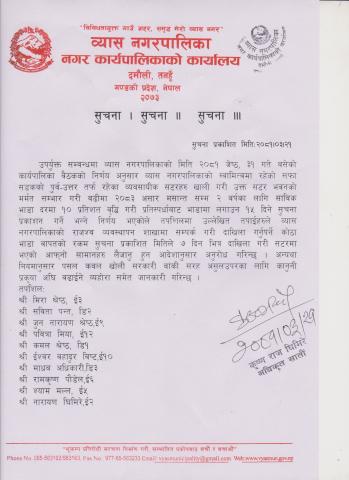 "विविधतायुक्त गाउँ शहर, समृद्ध मेरो व्यास नगर"
व्यास नगरपालिका
नगर कार्यपालिकाको कार्यालय
दमौली, तनहुँ
गण्डकी प्रदेश, नेपाल
२०७३
सुचना । सुचना ॥ सुचना ॥।
सुचना प्रकाशित मिति:२०८१/०३/२१
उपर्युक्त सम्बन्धमा व्यास नगरपालिकाको मिति २०८१ जेष्ठ, ३१ गते बसेको
कार्यपालिका बैठकको निर्णय अनुसार व्यास नगरपालिकाको स्वामित्वमा रहेको सफा
सडकको पुर्व-उत्तर तर्फ रहेका व्यवसायीक सटरहरु खाली गरी उक्त सटर भवनको
मर्मत सम्भार गरी बढीमा २०८३ असार मसान्त सम्म २ वर्षका लागि साविक
भाडा दरमा १० प्रतिशत बृद्धि गरी प्रतिस्पर्धाबाट भाडामा लगाउन १५ दिने सुचना
प्रकाशन गर्ने भन्ने निर्णय भएकोले तपशिलमा उल्लेखित तपाईहरुले व्यास
नगरपालिकाको राजश्व व्यवस्थापन शाखामा सम्पर्क गरी दाखिला गर्नुपर्ने कोठा
भाडा वापतको रकम सुचना प्रकाशित मितिले ७ दिन भित्र दाखिला गरी सटरमा
भएको आफ्नो सामानहरु लैजानु हुन आदेशानुसार अनुरोध गरिन्छ । अन्यथा
नियमानुसार पसल कवल खोली सरकारी बाँकी सरह असुलउपरका लागि कानुनी
प्रकृया अघि बढाईने व्यहोरा समेत जानकारी गरिन्छ ।
तपशिल:
श्री मिरा श्रेष्ठ, ई३
श्री सविता पन्त, डि२
श्री जुन नारायण श्रेष्ठ,ई९
श्री पवित्रा मिया, ई१२
श्री कमल श्रेष्ठ, डि१
श्री ईश्वर बहादुर विष्ट,ई१०
श्री माधव अधिकारी,डि३
श्री रामकृष्ण पौडेल,ई६
श्री श्याम मल्ल, ई५
श्री नारायण घिमिरे,ई२
२०८१/०३/२१
कृष्ण राज घिमिरे
अधिकृत सातौं
"भूकम्प प्रतिरोधी संरचना निर्माण गरौं, सम्भावित धनजनको क्षती बचाऔं"
Phone No. 065-560102/563163, Fax No. 977-65-560233 Email: vyasmunicipality@gmail.com Web:www.vyasmun.gov.np